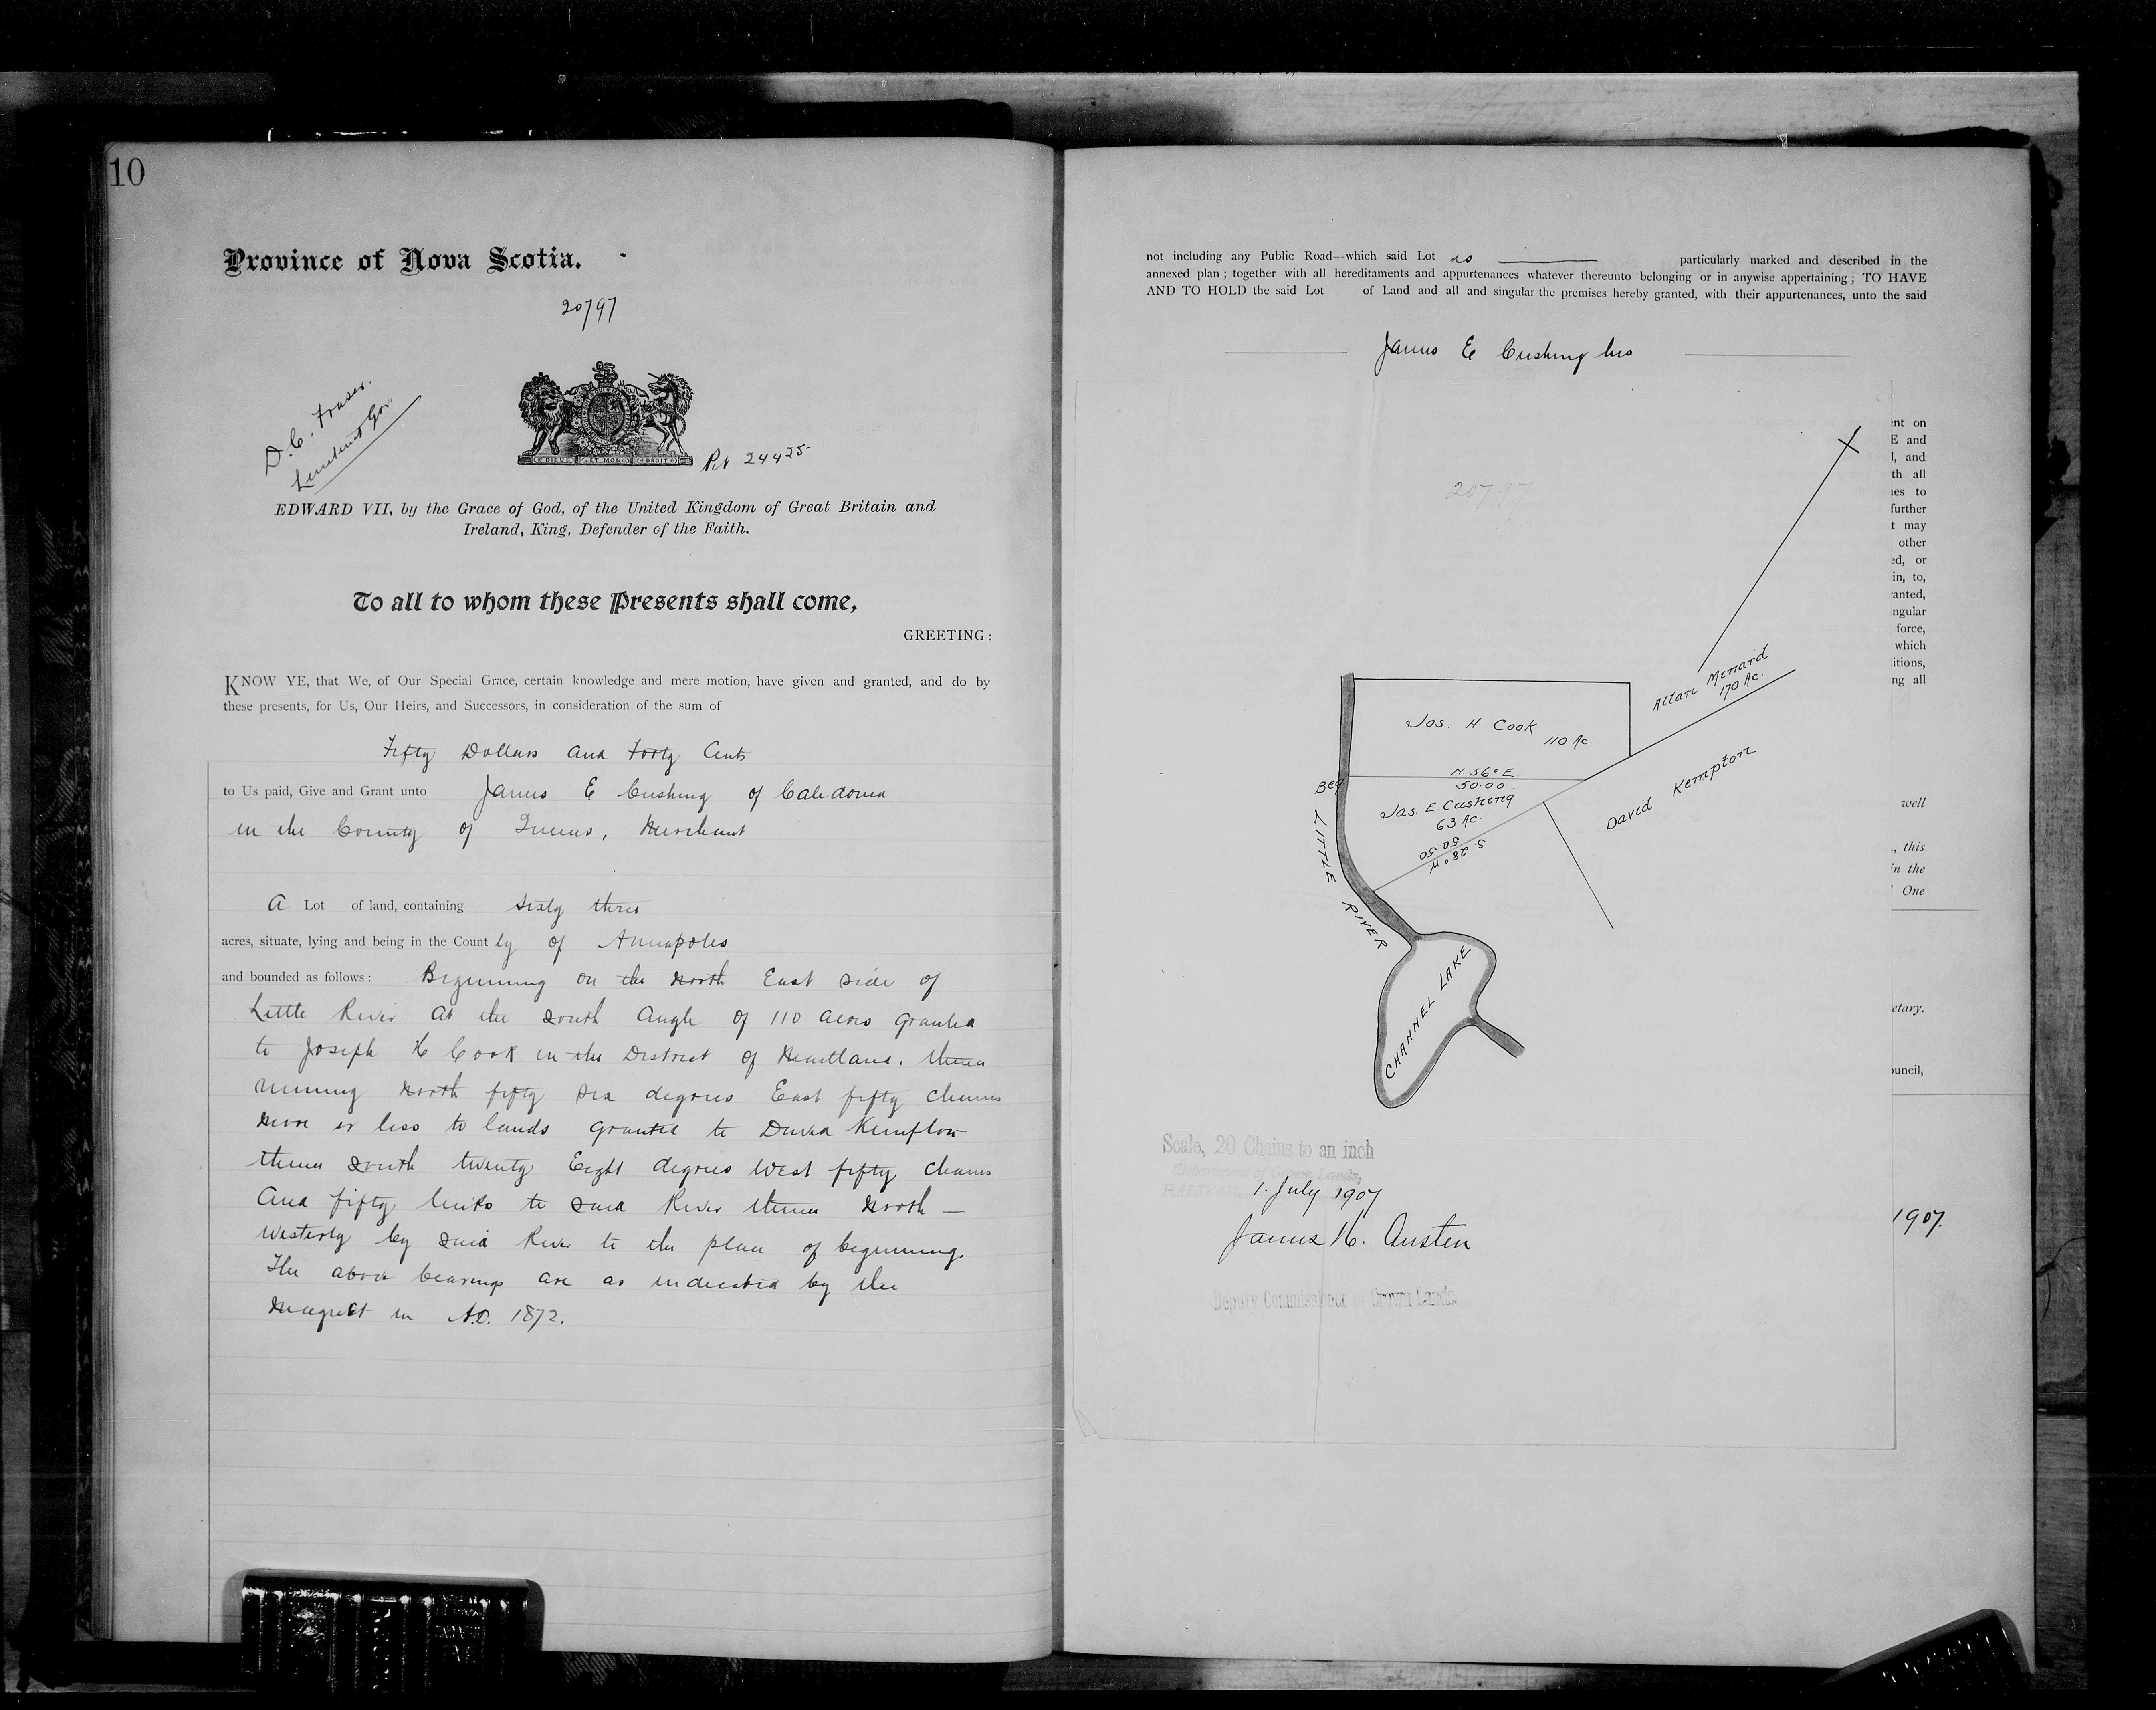 10
Province of Nova Scotia.
20797
D. C. Fraser.
Lieutenant Gov
DIEU ET MON DROIT
Pet 24425
EDWARD VII, by the Grace of God, of the United Kingdom of Great Britain and
Ireland, King, Defender of the Faith.
To all to whom these Presents shall come,
GREETING:
KNOW YE, that We, of Our Special Grace, certain knowledge and mere motion, have given and granted, and do by
these presents, for Us, Our Heirs, and Successors, in consideration of the sum of
Fifty Dollars and Forty Cents
to Us paid, Give and Grant unto James E Cushing of Caledonia
in the County of Queens, Merchant
A Lot of land, containing sixty three
acres, situate, lying and being in the County of Annapolis
and bounded as follows: Beginning on the North East side of
Little River at the South Angle of 110 acres granted
to Joseph H Cook in the District of Maitland. thence
running North fifty six degrees East fifty chains
more or less to lands granted to David Kempton
thence South twenty Eight degrees West fifty chains
and fifty links to said River thence North-
westerly by said River to the place of beginning.
The above bearings are as indicated by the
Magnet in A.D. 1872.
not including any Public Road—which said Lot as particularly marked and described in the
annexed plan; together with all hereditaments and appurtenances whatever thereunto belonging or in anywise appertaining; TO HAVE
AND TO HOLD the said Lot of Land and all and singular the premises hereby granted, with their appurtenances, unto the said
James E Cushing his
20797
Allan Minard
170 Ac.
Jos. H. Cook
110 Ac.
N. 56° E.
50.00
Beg
Jas. E. Cushing
63 Ac.
S. 28° W
50.50
David Kempton
LITTLE RIVER
CHANNEL LAKE
Scale, 20 Chains to an inch
Department of Crown Lands,
1. July 1907
James H. Austen
Deputy Commissioner of Crown Lands.
ent on
E and
l, and
th all
es to
further
t may
other
ed, or
in, to,
ranted,
ngular
force,
which
litions,
ng all
well
., this
in the
One
etary.
ouncil,
1907.